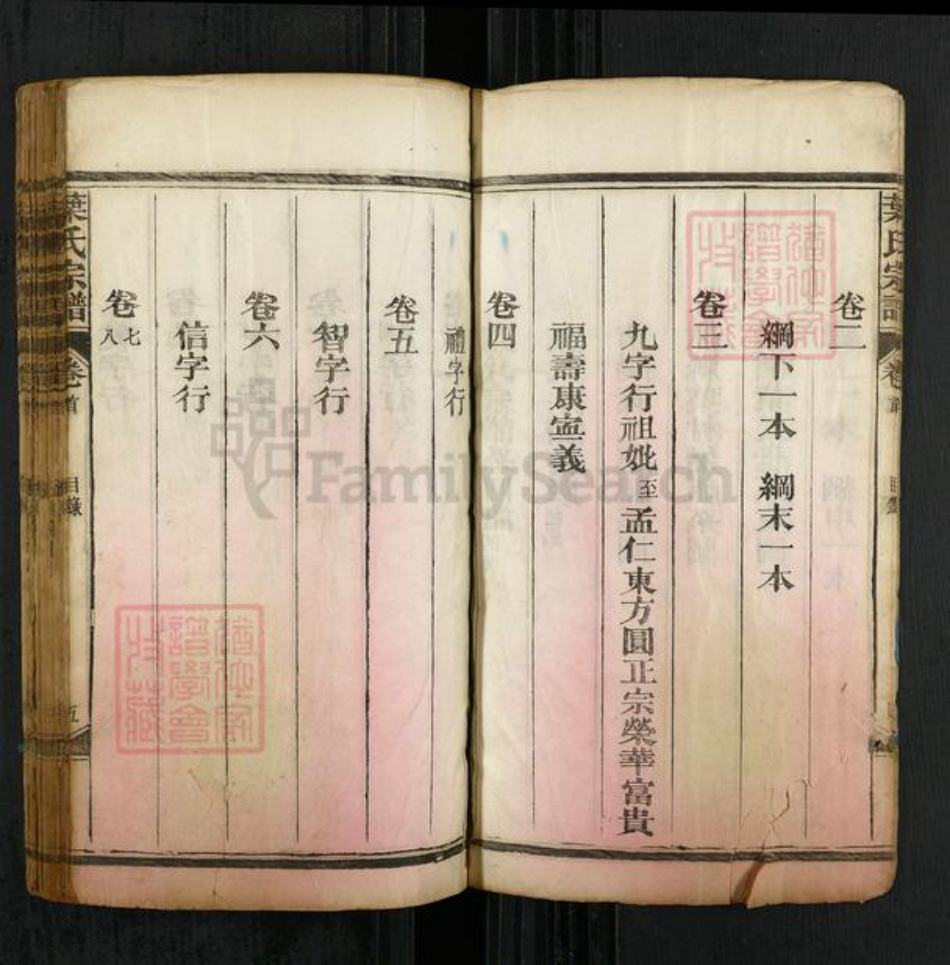 葉氏宗譜 卷首 目錄
卷二
綱下一本 綱末一本
卷三
九字行祖妣至孟仁東方圓正宗榮華富貴
福壽康寍義
卷四
禮字行
卷五
智字行
卷六
信字行
卷七八
葉氏宗譜 卷首 目錄 五
FamilySearch